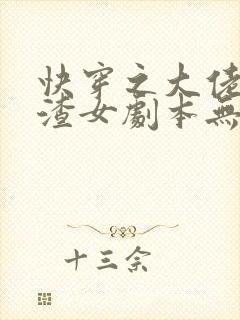 快穿之大佬
渣女劇本無
十三余